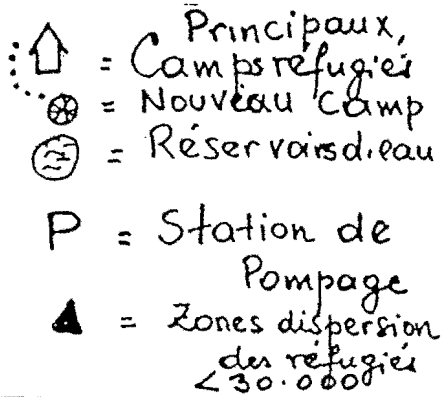 Principaux,
= Camps réfugiés
= Nouveau Camp
= Réservoirs d.eau
P = Station de
Pompage
= Zones dispersion
des réfugiés
<30.000